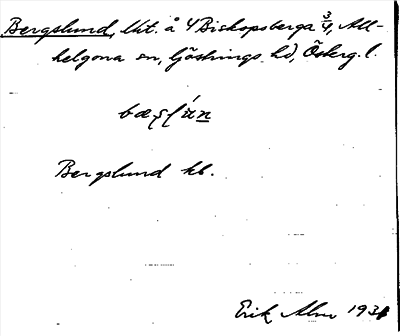 Bergslund, Utt. å 4 Biskopsberga 3/4, All-
helgona sn, Göstrings hd, Österg. l.
Bergslund hl.
Erik Alm 1931